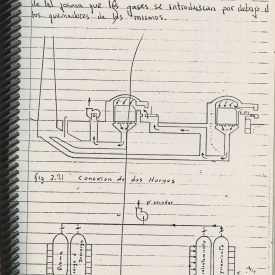 de tal forma que los gases se introduzcan por debajo d
los quemadores de los mismos.
fig 2.21 Conexion de dos Hornos
p' secador
Quema
Descarga